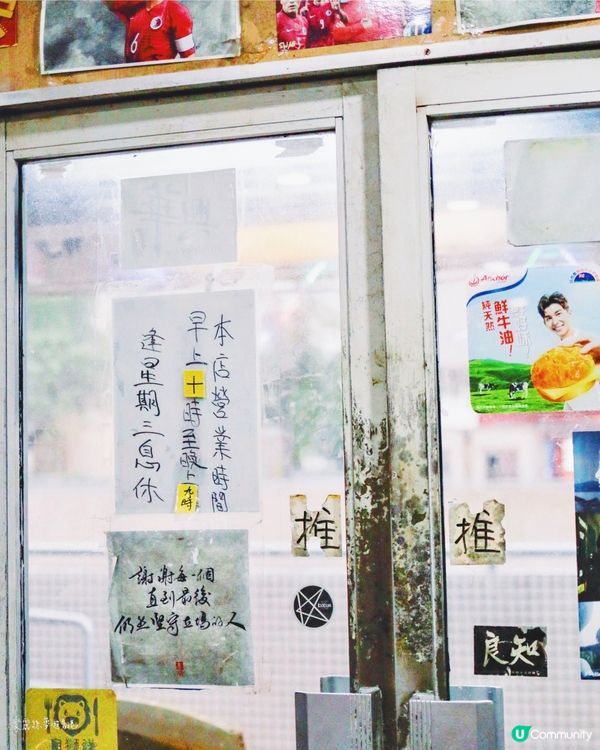 6
本店營業時間
早上十時至晚上九時
逢星期三息休
謝謝每一個
直到最後
仍然堅守立場的人
推
推
Anchor
鮮牛油！
純天然
良知
U Community